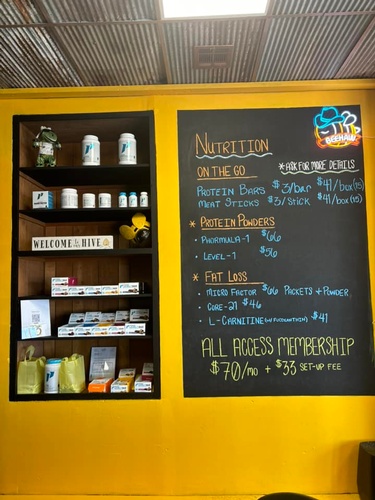 BEEHAW
NUTRITION
ON THE GO
*ASK FOR MORE DETAILS
PROTEIN BARS $3/bar $41/box(15)
MEAT STICKS $3/stick $41/box(15)
* PROTEIN POWDERS
• PHORMULA-1 $66
• LEVEL-1 $56
* FAT LOSS
• MICRO FACTOR $66 PACKETS + POWDER
• CORE-21 $46
• L-CARNITINE $41
ALL ACCESS MEMBERSHIP
$70/MO + $33 SET-UP FEE
WELCOME to the HIVE